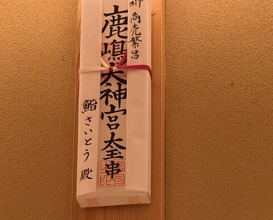 祈 商売繁昌
鹿嶋天神宮玉串
鮨さいとう 殿